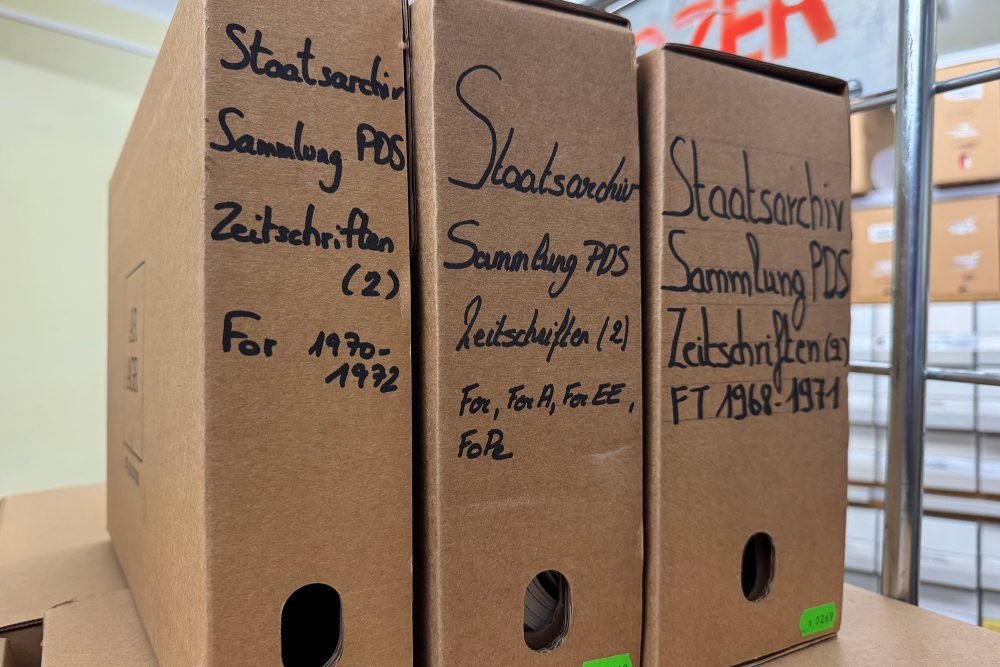 Staatsarchiv
Sammlung PDS
Zeitschriften
(2)
For 1970-
1972
Staatsarchiv
Sammlung PDS
Zeitschriften (2)
For, For A, For EE,
Staatsarchiv
Sammlung PDS
Zeitschriften (2)
FT 1968-1971
0269